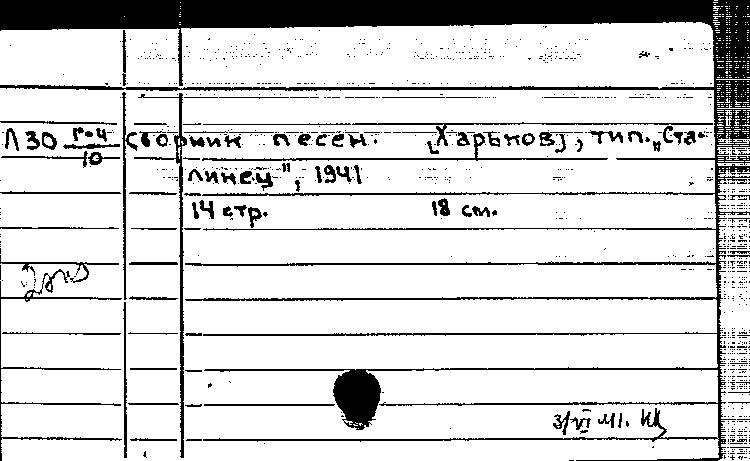 Л30 Г-4 Сборник песен. [Харьков], тип. „Ста-
10
линец", 1941
14 стр. 18 см.
2 экз
3/VI 41.